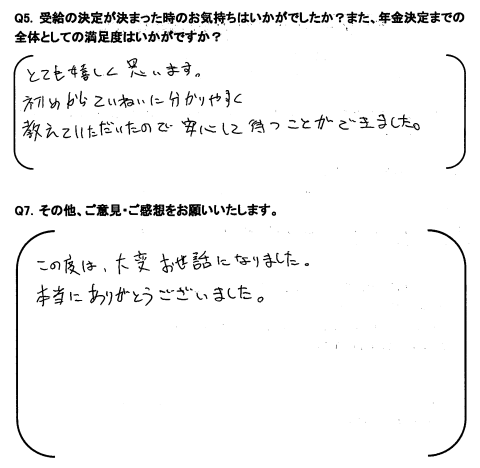 Q5. 受給の決定が決まった時のお気持ちはいかがでしたか？また、年金決定までの
全体としての満足度はいかがですか？
とても嬉しく思います。
初めからていねいに分かりやすく
教えていただいたので安心して待つことができました。
Q7. その他、ご意見・ご感想をお願いいたします。
この度は、大変お世話になりました。
本当にありがとうございました。